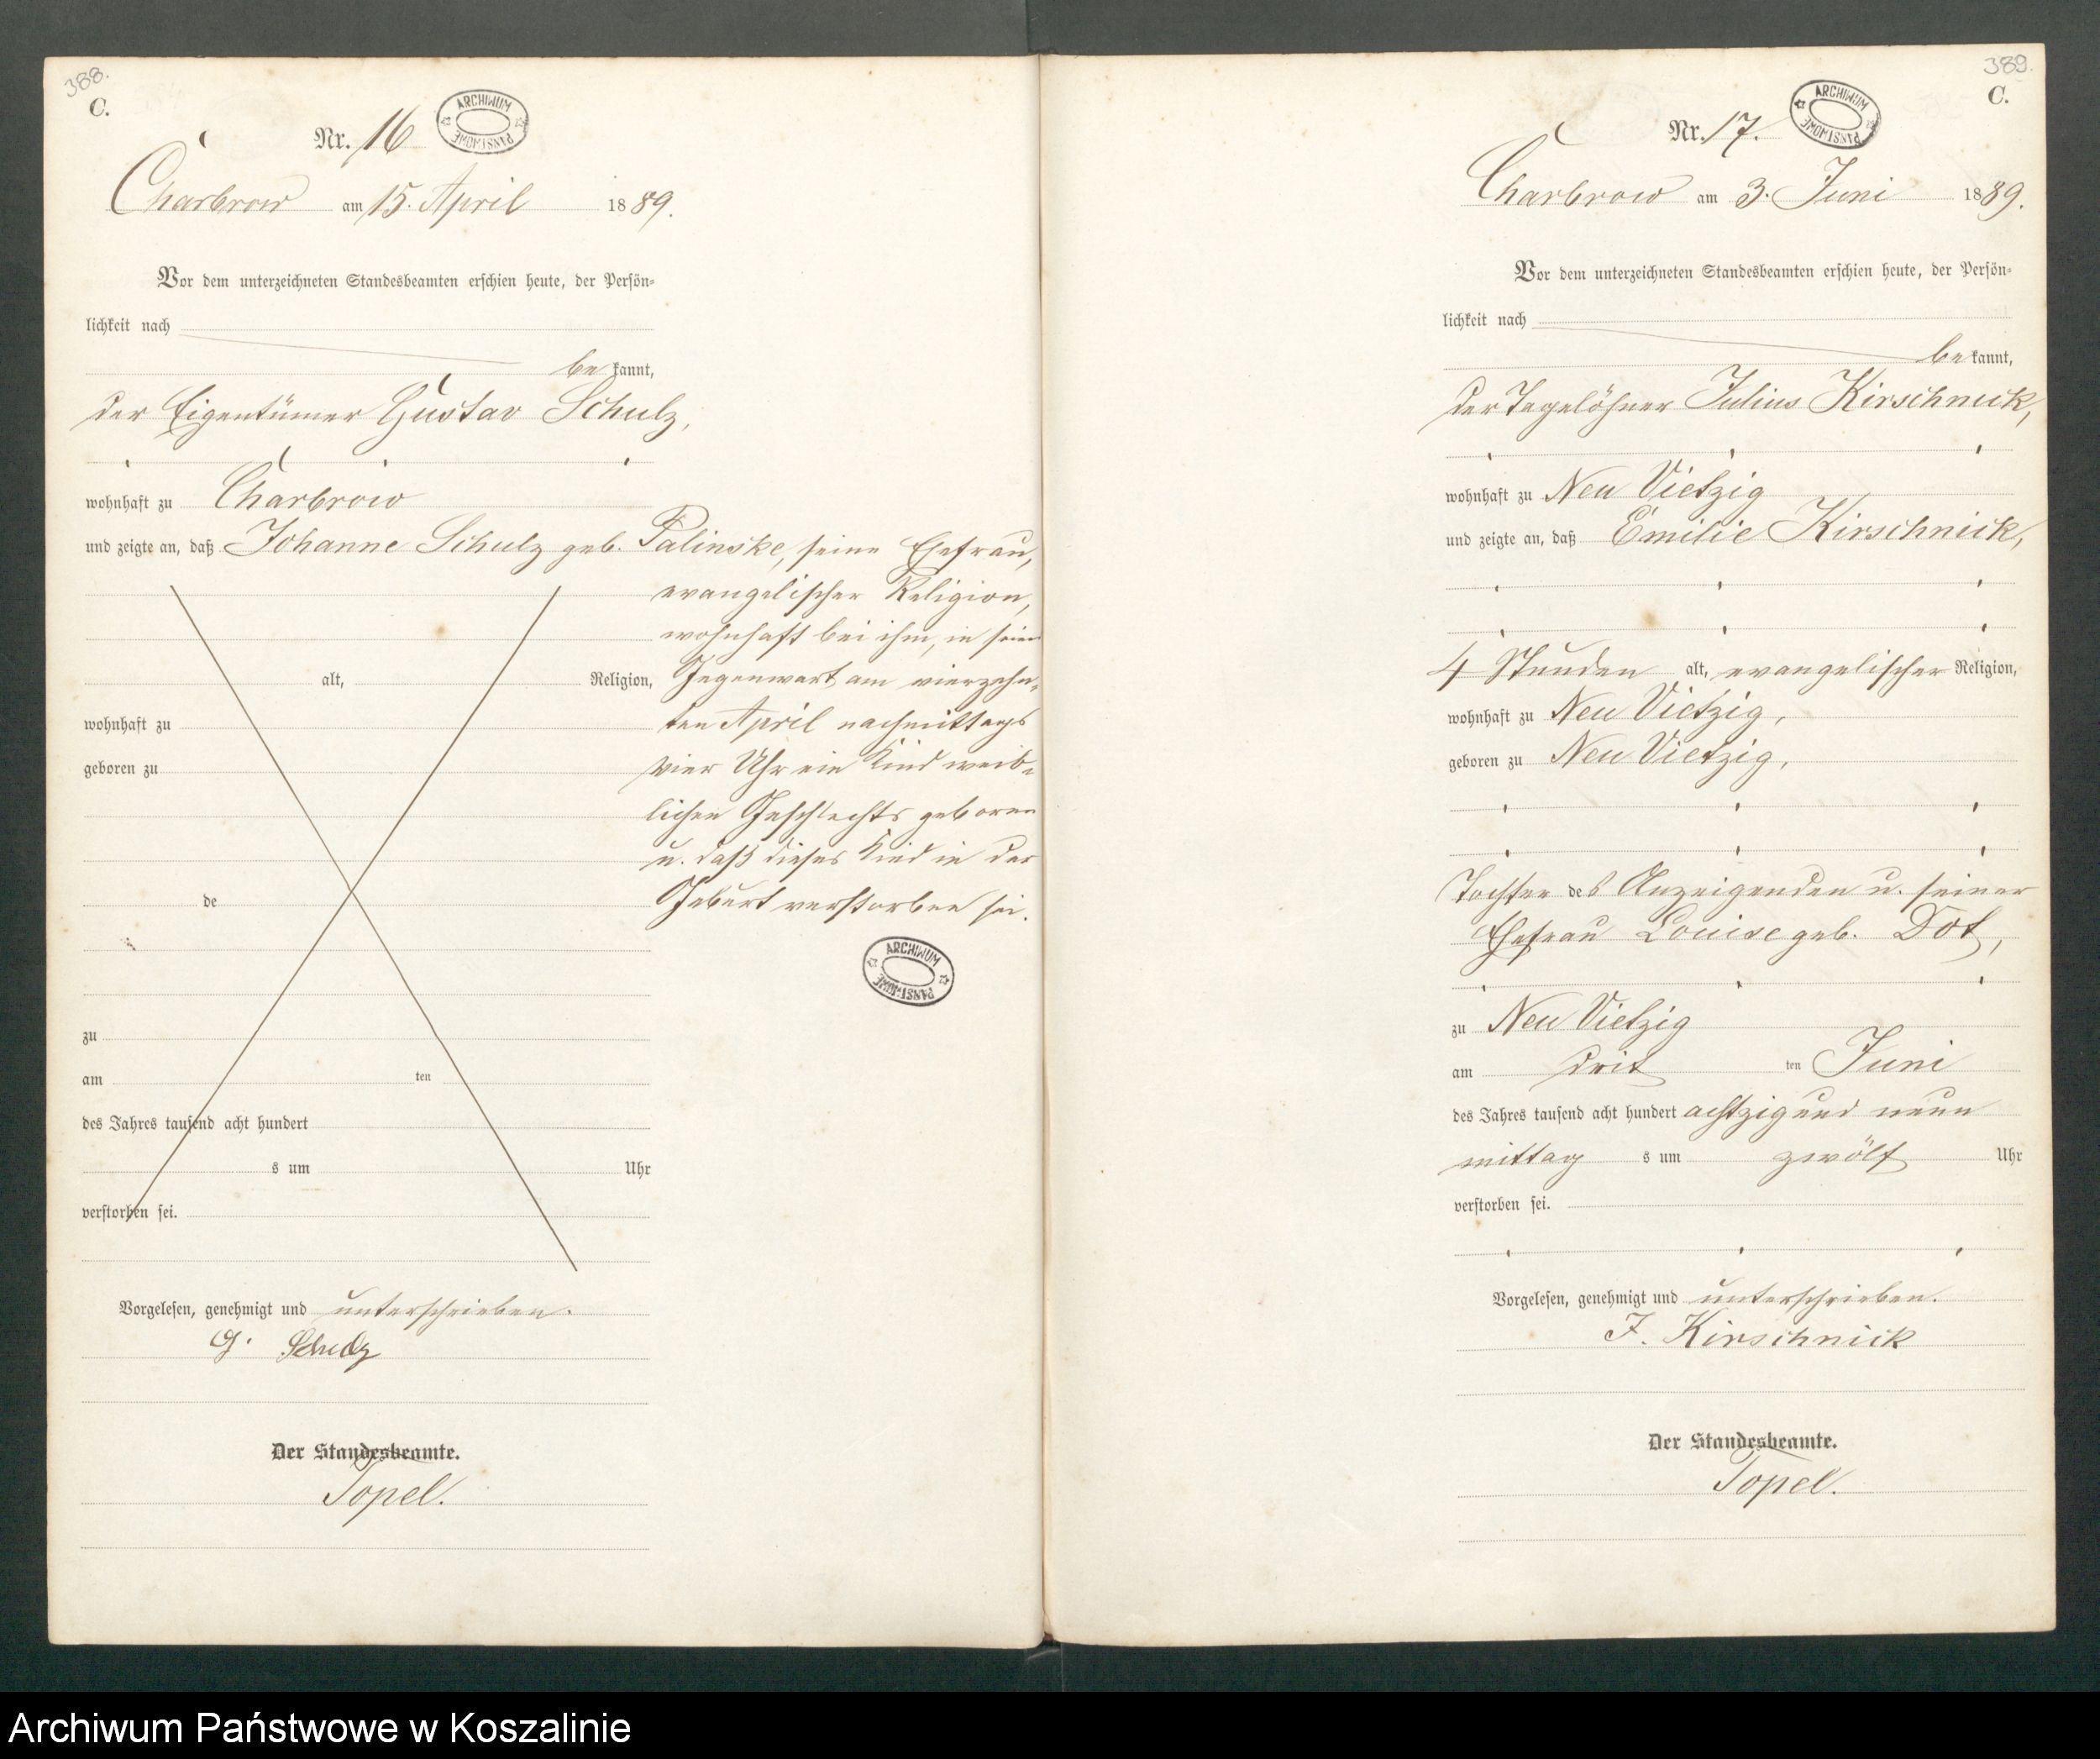 388.
C.
Nr. 16
ARCHIWUM PAŃSTWOWE
Charbrow am 15. April 1889.
Vor dem unterzeichneten Standesbeamten erschien heute, der Persön-
lichkeit nach
bekannt,
der Eigentümer Gustav Schulz,
wohnhaft zu Charbrow
und zeigte an, daß Johanne Schulz geb. Palinske, seine Ehefrau,
evangelischer Religion,
wohnhaft bei ihm, in seiner
alt, Religion, Gegenwart am vierzehn-
wohnhaft zu ten April nachmittags
geboren zu vier Uhr ein Kind weib-
lichen Geschlechts geboren
u. daß dieses Kind in der
de Geburt verstorben sei.
ARCHIWUM PAŃSTWOWE
zu
am ten
des Jahres tausend acht hundert
s um Uhr
verstorben sei.
Vorgelesen, genehmigt und unterschrieben.
G. Schulz
Der Standesbeamte.
Topel.
389.
C.
Nr. 17.
ARCHIWUM PAŃSTWOWE
Charbrow am 3. Juni 1889.
Vor dem unterzeichneten Standesbeamten erschien heute, der Persön-
lichkeit nach
bekannt,
der Tagelöhner Julius Kirschnick,
wohnhaft zu Neu Vietzig
und zeigte an, daß Emilie Kirschnick,
4 Stunden alt, evangelischer Religion,
wohnhaft zu Neu Vietzig,
geboren zu Neu Vietzig,
Tochter des Anzeigenden u. seiner
Ehefrau Louise geb. Dot,
zu Neu Vietzig
am drit ten Juni
des Jahres tausend acht hundert achtzig und neun
mittag s um zwölf Uhr
verstorben sei.
Vorgelesen, genehmigt und unterschrieben.
J. Kirschnick
Der Standesbeamte.
Topel.
Archiwum Państwowe w Koszalinie